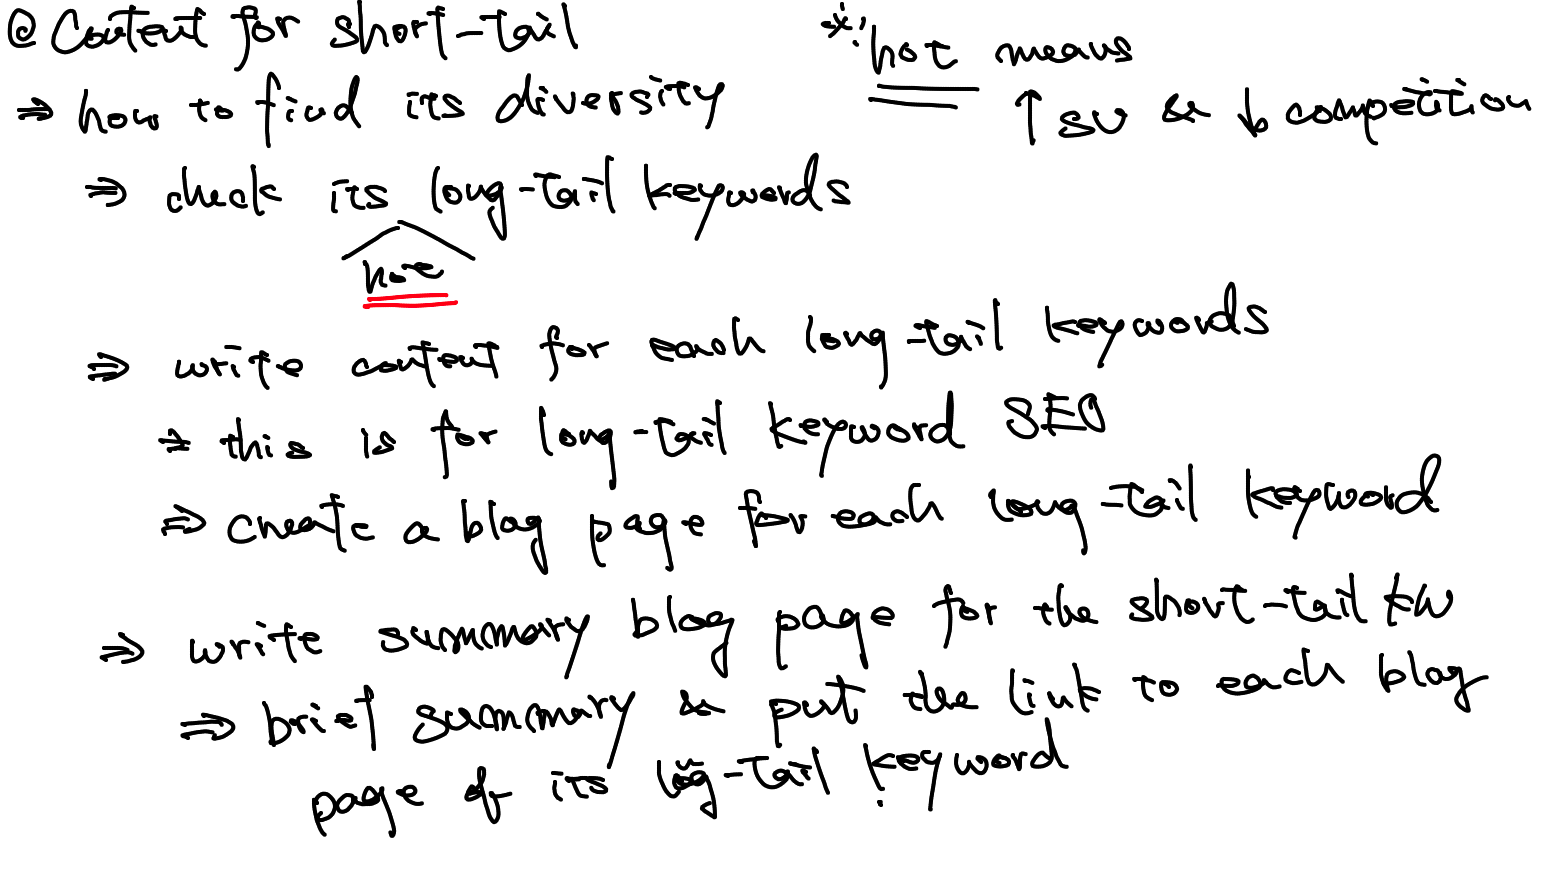 @ Content for short-tail
※: hot means
↑ SV & ↓ competition
⇒ how to find its diversity
⇒ check its long-tail keywords
hot
⇒ write content for each long-tail keywords
→ this is for long-tail keyword SEO
⇒ create a blog page for each long-tail keyword
⇒ write summary blog page for the short-tail KW
⇒ brief summary & put the link to each blog
page of its long-tail keyword